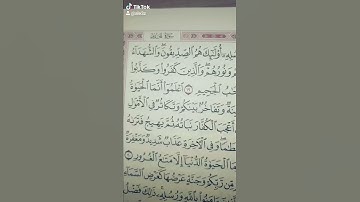 TikTok
سورة الحديد
أُولَٰئِكَ هُمُ الصِّدِّيقُونَ وَالشُّهَدَاءُ
وَنُورُهُمْ وَالَّذِينَ كَفَرُوا وَكَذَّبُوا
الْجَحِيمِ ١٩ اعْلَمُوا أَنَّمَا الْحَيَوٰةُ
وَتَفَاخُرٌ بَيْنَكُمْ وَتَكَاثُرٌ فِي الْأَمْوَٰلِ
أَعْجَبَ الْكُفَّارَ نَبَاتُهُ ثُمَّ يَهِيجُ فَتَرَىٰهُ
وَفِي الْآخِرَةِ عَذَابٌ شَدِيدٌ وَمَغْفِرَةٌ
الْحَيَوٰةُ الدُّنْيَا إِلَّا مَتَٰعُ الْغُرُورِ ٢٠
مِّن رَّبِّكُمْ وَجَنَّةٍ عَرْضُهَا كَعَرْضِ السَّمَاءِ
بِاللَّهِ وَرُسُلِهِ ذَٰلِكَ فَضْلُ